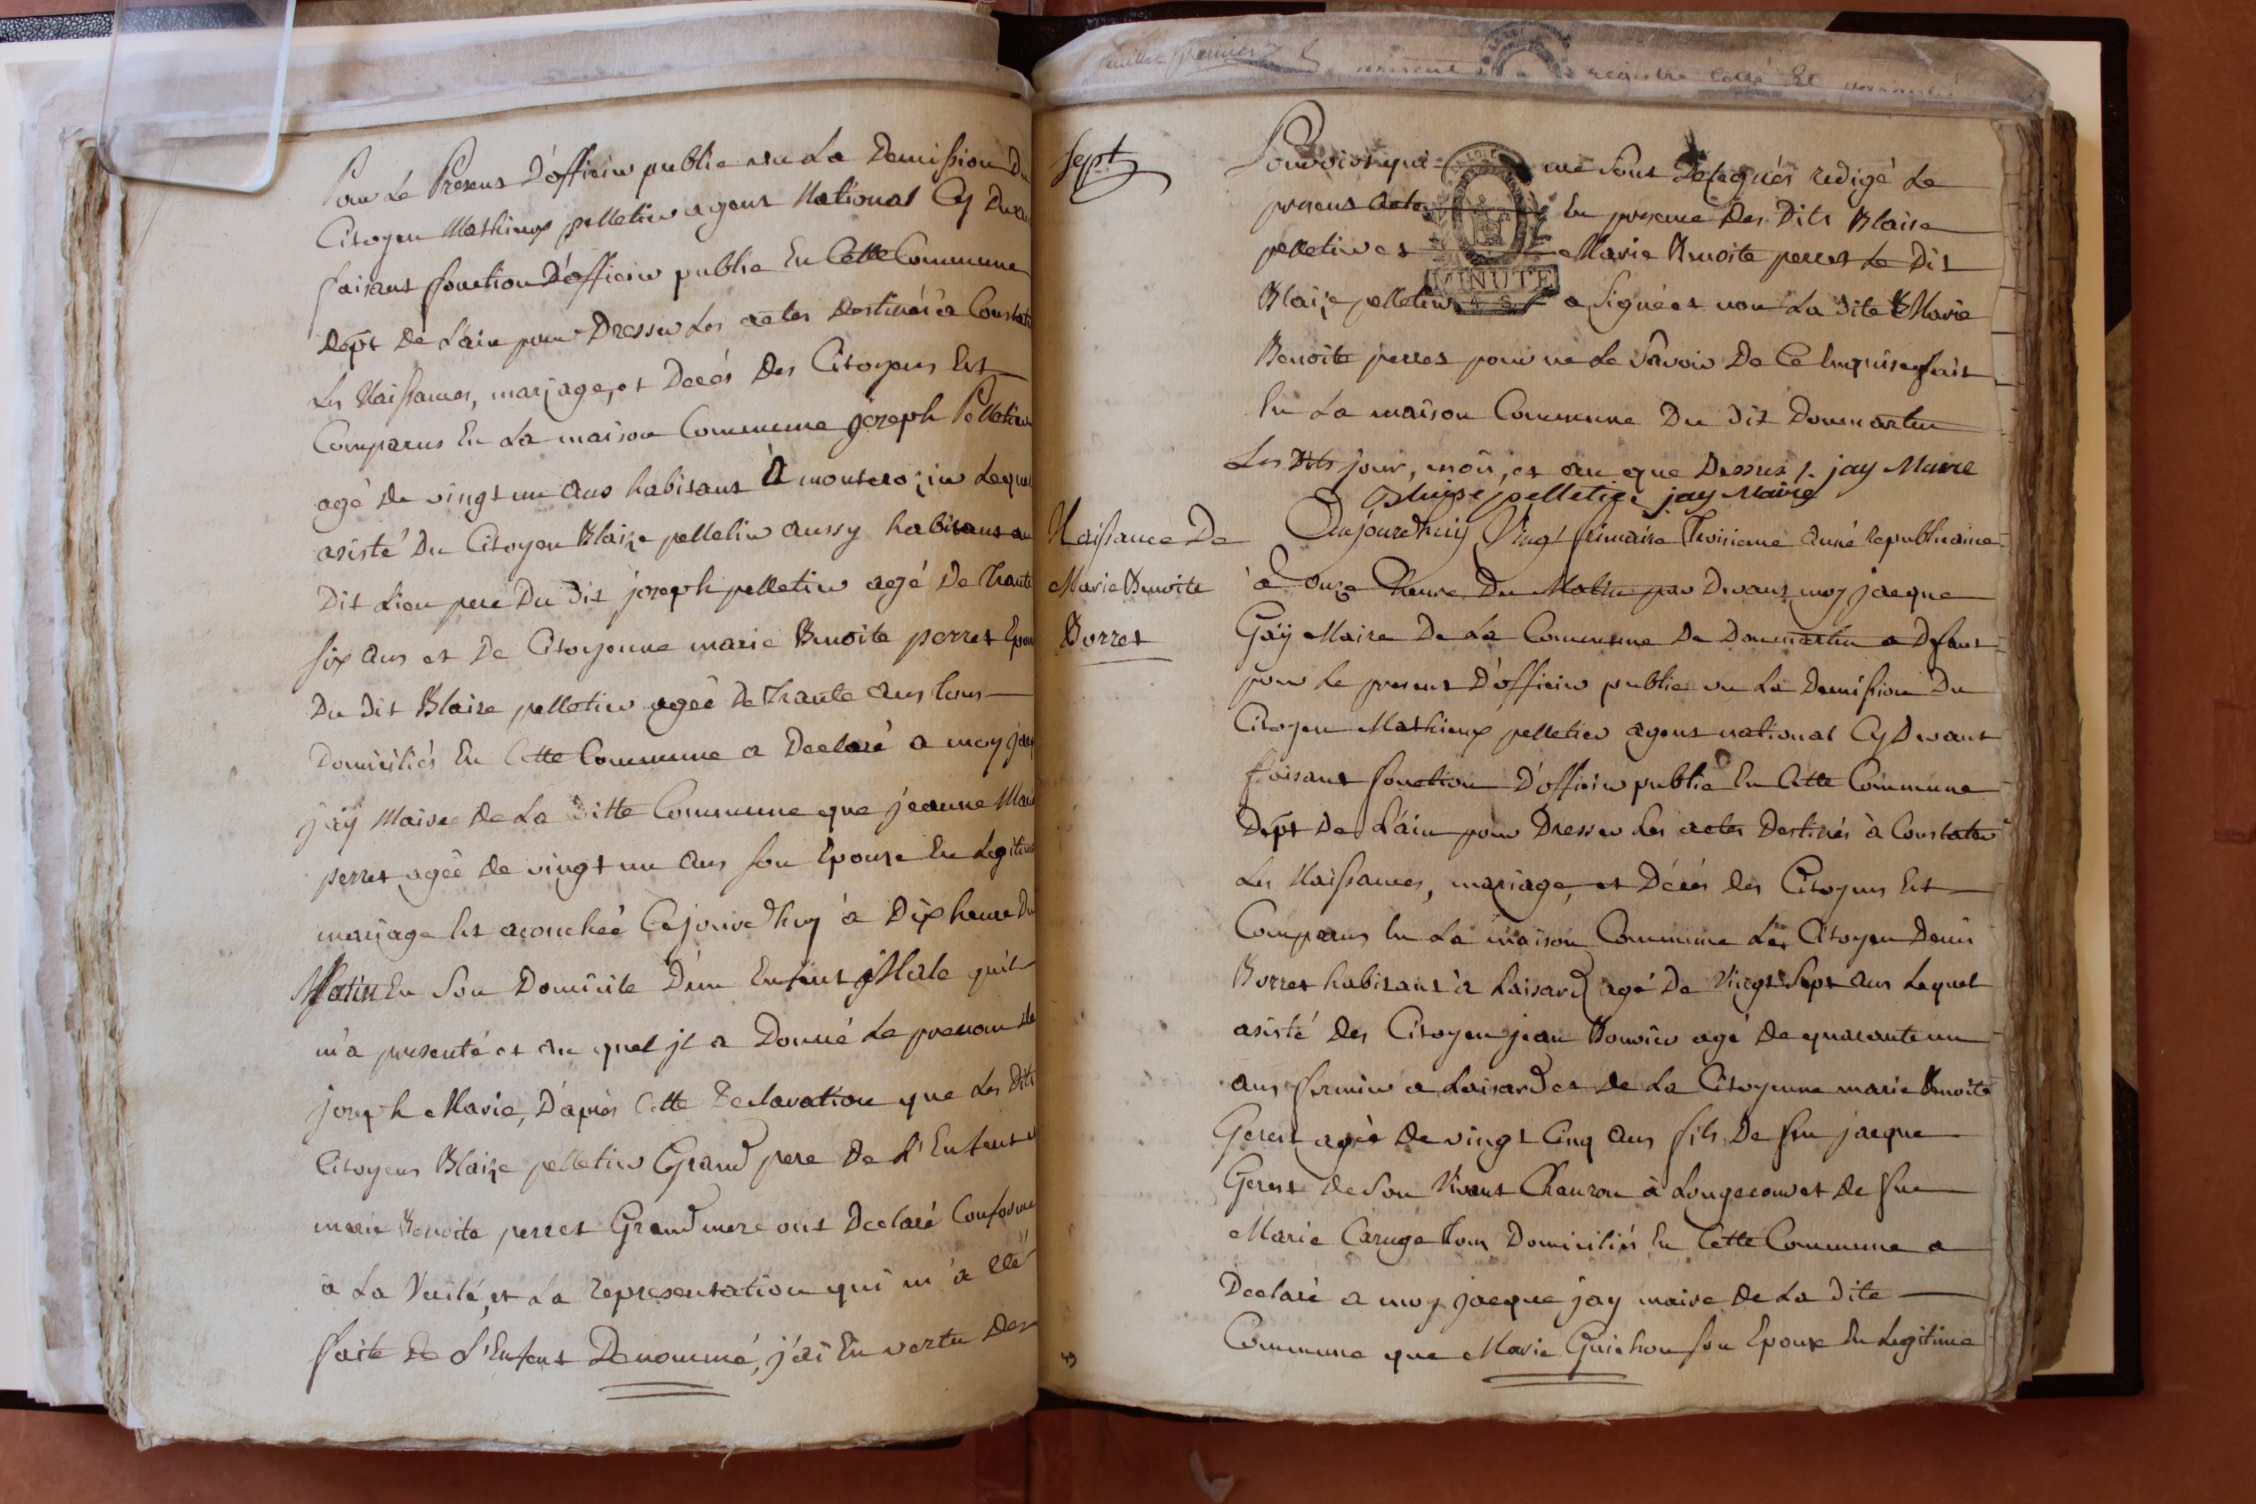 Pour Le Present D'officier public vu La Demission Du
Citoyen Mathieux pelletier agent National Cy Devan
faisant fonction D'officier public En Cette Commune
Dept De L'ain pour Dresser Les actes Destinés a Constat
Les Naissances, mariage, et Decés Des Citoyens Est
Comparus En La maison Commune joseph Pelletier
agé de vingt un ans habitant A monterozier Lequel
asisté Du Citoyen Blaize pelletier aussy habitant au
Dit Lieu pere Du Dit joseph pelletier agé De Trante
six ans et De Citoyenne marie Benoite perret Epou
Du Dit Blaize pelletier agéé De Trante ans tous
Domiciliés En Cette Commune a Declaré a moy jacq
jäy Maire De La Ditte Commune que jeanne Mari
perret agéé de vingt un ans son Epouse En Legitim
mariage Est acouchéé Cejourd'huy à Dix heure Du
Matin En Son Domicile D'un Enfant Male quil
m'a presenté et au quel jl a Donné Le prenom de
joseph Marie, D'après Cette Declaration que Les Dits
Citoyens Blaize pelletier Grand pere De L'Enfant et
marie Benoite perret Grand mere ont Declaré Conforme
a La Verité, et La representation qui m'a eté
faite De L'Enfant Denommé, j'ai En vertu Des
feuillet premier
registre Cotté Et
Sept
Pouvoir qui me sont Delegués redigé Le
present acte En presence Des Dits Blaise
pelletier et Marie Benoite perret Le Dit
MINUTE
Blaize pelletier a Signé et non La Dite Marie
Benoite perret pour ne Le Savoir De Ce Enquise fait
En La maison Commune Du Dit Dommartin
Les Dits jour, mois, et an que Dessus /. jay Maire
Blaise pelletier jay Maire
Naissance De
Marie Benoite
Borret
Aujourdhuy Vingt frimaire Troisieme année republicaine
à onze heure Du Matin par Devant moy jacque
Gäy Maire De La Commune De Dommartin a Defaut
pour Le present D'officier public vu La Demission Du
Citoyen Mathieux pelletier agent national Cy Devant
faisant fonction D'officier public En Cette Commune
Dept De L'ain pour Dresser Les actes Destinés à Constater
Les Naissances, mariage, et Décés des Citoyens Est
Comparus En La maison Commune Les Citoyen Denis
Borret habitant à Laisard agé De Vingt Sept ans Lequel
asisté Des Citoyen jean Bouvier agé De quarante un
ans fermier a Loisard et De La Citoyenne marie Benoite
Gerest agéé De vingt Cinq ans fils De feu jacque
Gerest De Son Vivant Charron à Longecourt et De feue
Marie Caruge tous Domiciliés En Cette Commune a
Declaré a moy jacque jay maire De La Dite
Commune que Marie Guichon son Epouse En Legitime
49